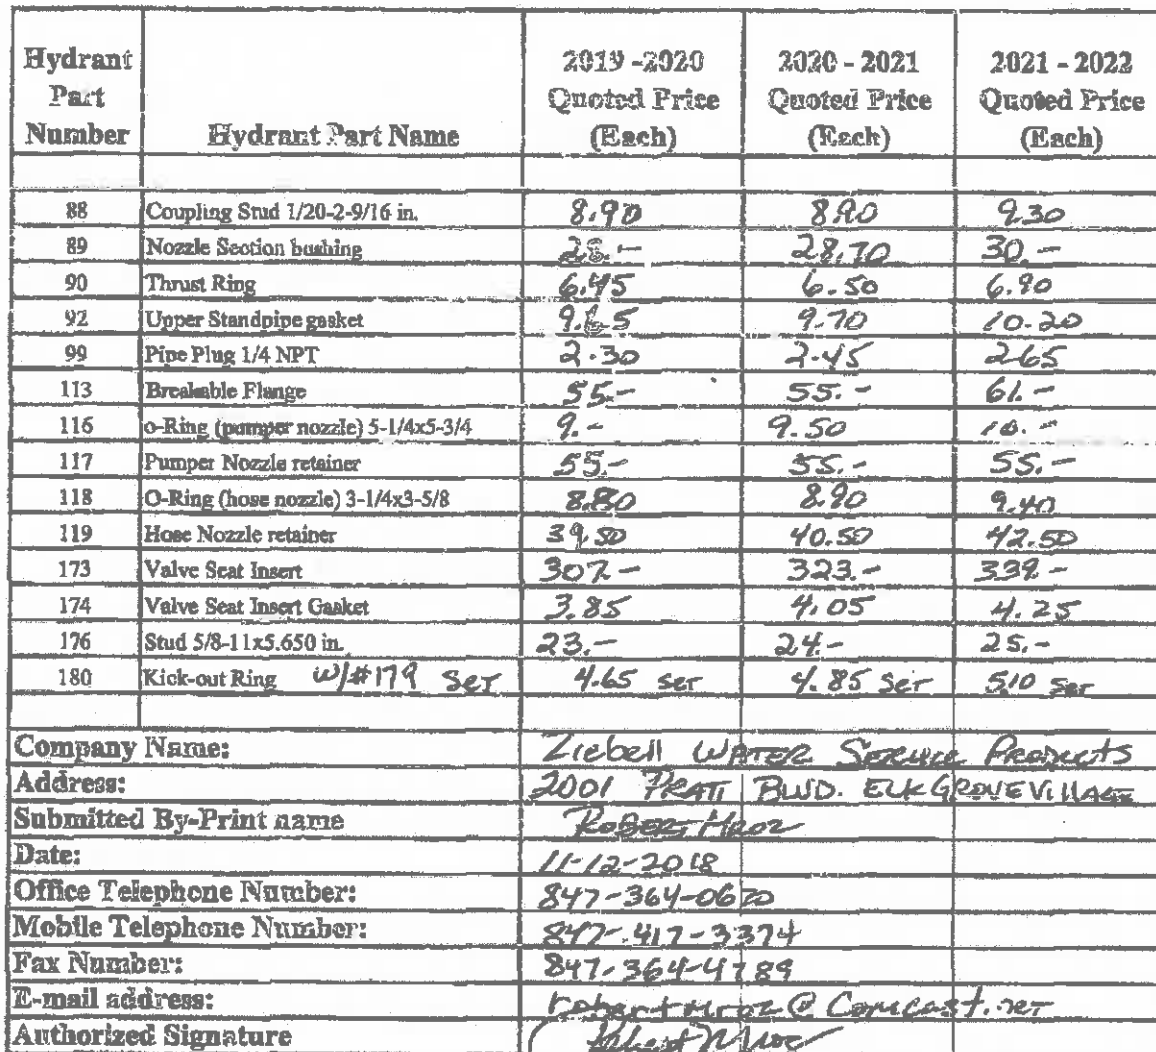 Hydrant Part Number Hydrant Part Name 2019 -2020 Quoted Price (Each) 2020 - 2021 Quoted Price (Each) 2021 - 2022 Quoted Price (Each)
88 Coupling Stud 1/20-2-9/16 in. 8.90 8.90 9.30
89 Nozzle Section bushing 28.- 28.70 30.-
90 Thrust Ring 6.45 6.50 6.90
92 Upper Standpipe gasket 9.70 10.20
99 Pipe Plug 1/4 NPT 2.30 2.45 2.65
113 Breakable Flange 55.- 55.- 61.-
116 o-Ring (pumper nozzle) 5-1/4x5-3/4 9.- 9.50 10.-
117 Pumper Nozzle retainer 55- 55.- 55.-
118 O-Ring (hose nozzle) 3-1/4x3-5/8 8.80 8.90 9.40
119 Hose Nozzle retainer 39.50 40.50 42.50
173 Valve Seat Insert 307.- 323.- 339.-
174 Valve Seat Insert Gasket 3.85 4.05 4.25
176 Stud 5/8-11x5.650 in. 23.- 24.- 25.-
180 Kick-out Ring w/#179 SET 4.65 SET 4.85 SET 5.10 SET
Company Name: Ziebell WATER SERVICE PRODUCTS
Address: 2001 PRATT BLVD. ELK GROVE VILLAGE
Submitted By-Print name ROBERT MROZ
Date: 11-12-2018
Office Telephone Number: 847-364-0670
Mobile Telephone Number: 847-417-3374
Fax Number: 847-364-4789
E-mail address: robertmroz@Comcast.net
Authorized Signature Robert Mroz